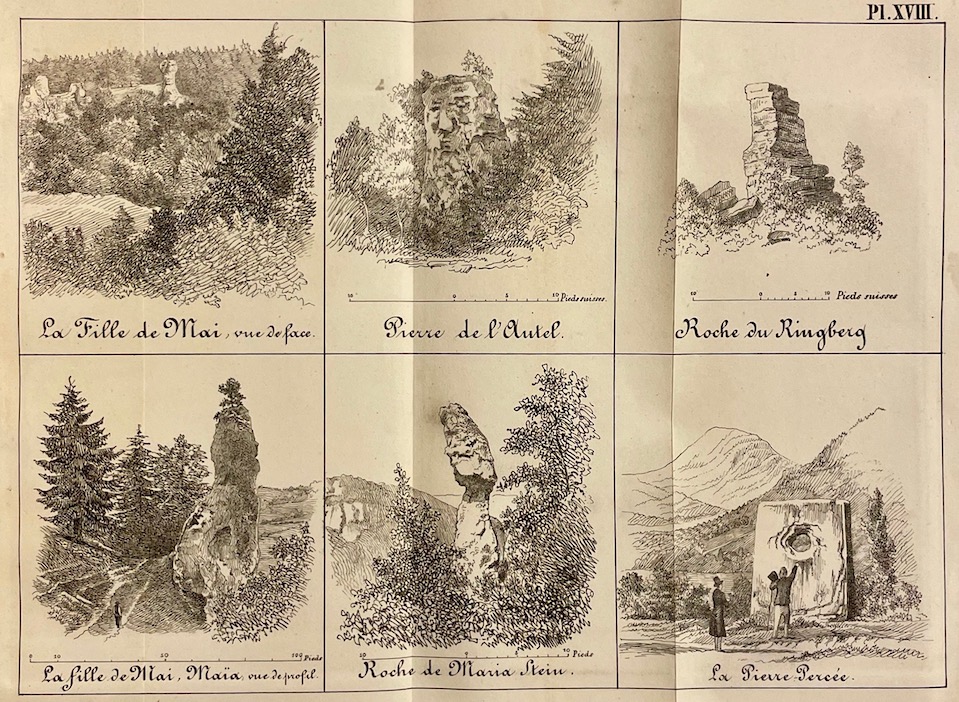 Pl. XVIII.
La Fille de Mai, vue de face.
10 0 5 10 Pieds suisses.
Pierre de l'Autel.
10 0 5 10 Pieds suisses
Roche du Ringberg
0 10 50 100 Pieds
La fille de Mai, Maïa, vue de profil.
10 0 5 10 Pieds
Roche de Maria Stein.
La Pierre-Percée.